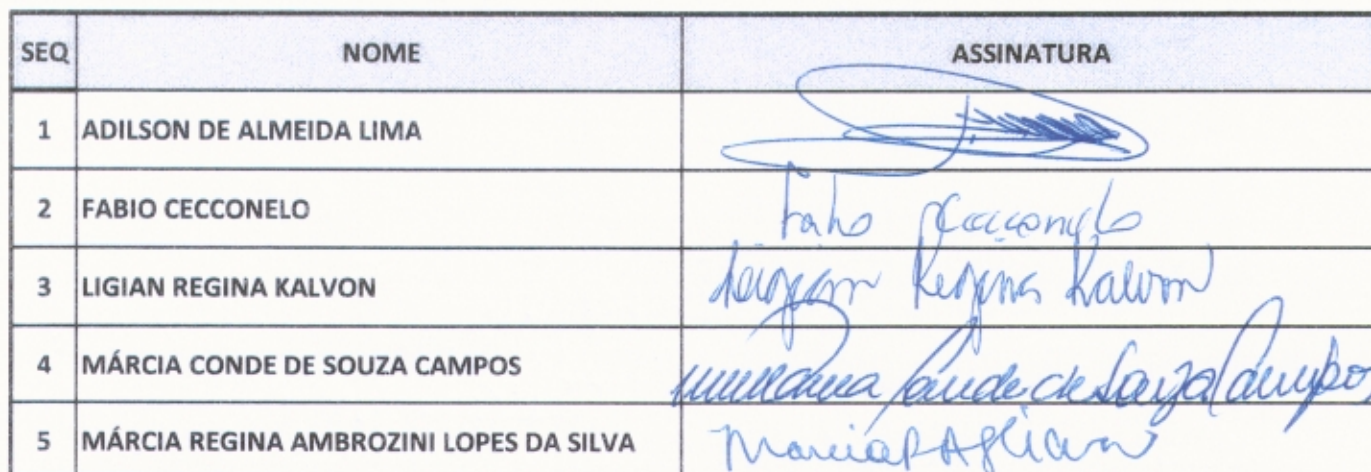 SEQ NOME ASSINATURA
1 ADILSON DE ALMEIDA LIMA
2 FABIO CECCONELO Fabio Cecconelo
3 LIGIAN REGINA KALVON Ligian Regina Kalvon
4 MÁRCIA CONDE DE SOUZA CAMPOS Conde de Souza Campos
5 MÁRCIA REGINA AMBROZINI LOPES DA SILVA